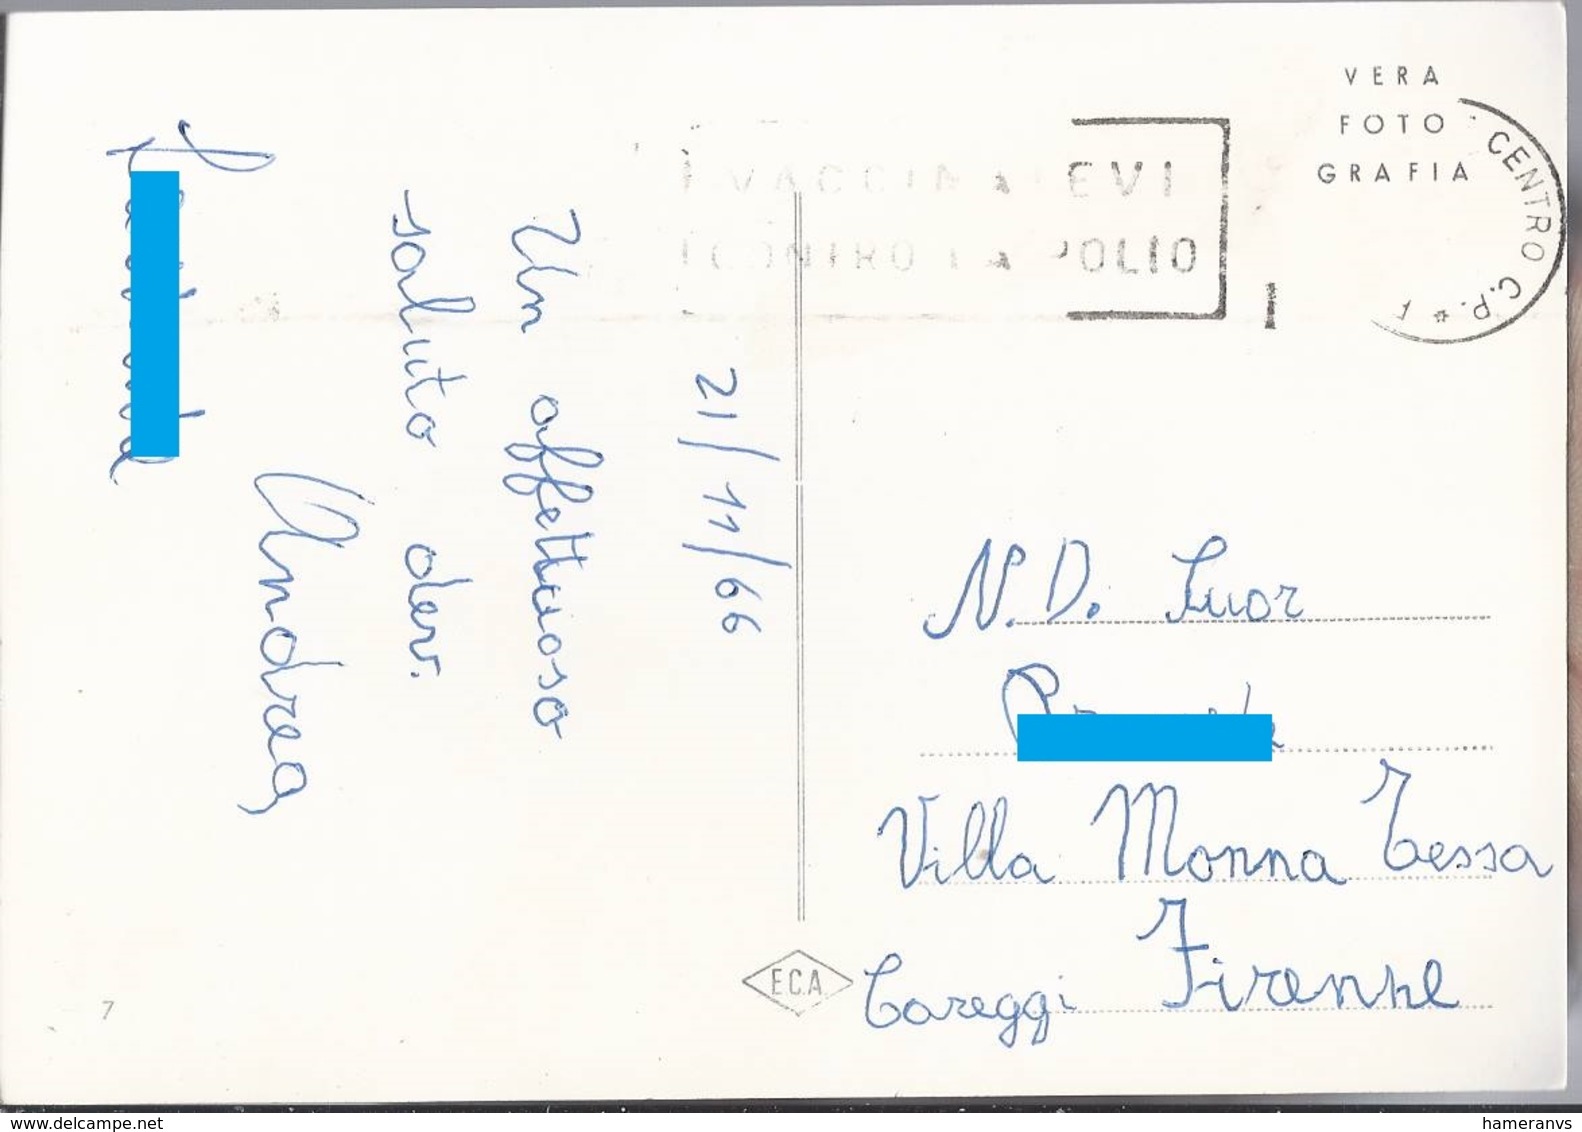 VERA
FOTO
GRAFIA
VACCINATEVI
CONTRO LA POLIO
CENTRO C.P. *
21/11/66
Un affettuoso
saluto dev.
Andrea
N.D. Suor
Villa Monna Tessa
Careggi Firenze
E.C.A.
7
www.delcampe.net
hameranvs